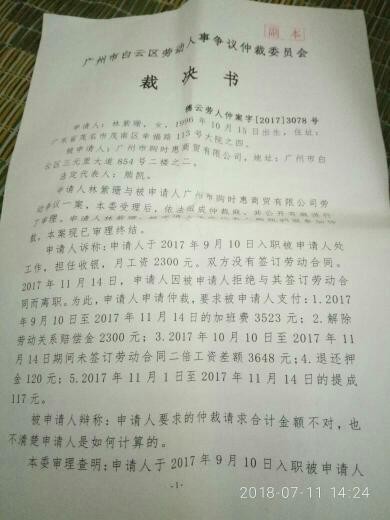 副本
广州市白云区劳动人事争议仲裁委员会
裁决书
穗云劳人仲案字[2017]3078 号
申请人：林紫珊，女，1996 年 10 月 15 日出生，住址：
广东省茂名市茂南区幸福路 113 号大院之四。
被申请人：广州市购时惠商贸有限公司，地址：广州市白
云区三元里大道 854 号二楼之二。
法定代表人：熊凯。
申请人林紫珊与被申请人广州市购时惠商贸有限公司劳
动争议一案，本委受理后，依法组成仲裁庭，并公开开庭进行
了审理。申请人林紫珊
故，本案现已审理终结。
申请人诉称：申请人于 2017 年 9 月 10 日入职被申请人处
工作，担任收银，月工资 2300 元。双方没有签订劳动合同。
2017 年 11 月 14 日，申请人因被申请人拒绝与其签订劳动合
同而离职。为此，申请人申请仲裁，要求被申请人支付：1.2017
年 9 月 10 日至 2017 年 11 月 14 日的加班费 3523 元；2.解除
劳动关系赔偿金 2300 元；3.2017 年 10 月 10 日至 2017 年 11
月 14 日期间未签订劳动合同二倍工资差额 3648 元；4.退还押
金 120 元；5.2017 年 11 月 1 日至 2017 年 11 月 14 日的提成
117 元。
被申请人辩称：申请人要求的仲裁请求合计金额不对，也
不清楚申请人是如何计算的。
本委审理查明：申请人于 2017 年 9 月 10 日入职被申请人
-1-
2018-07-11 14:24